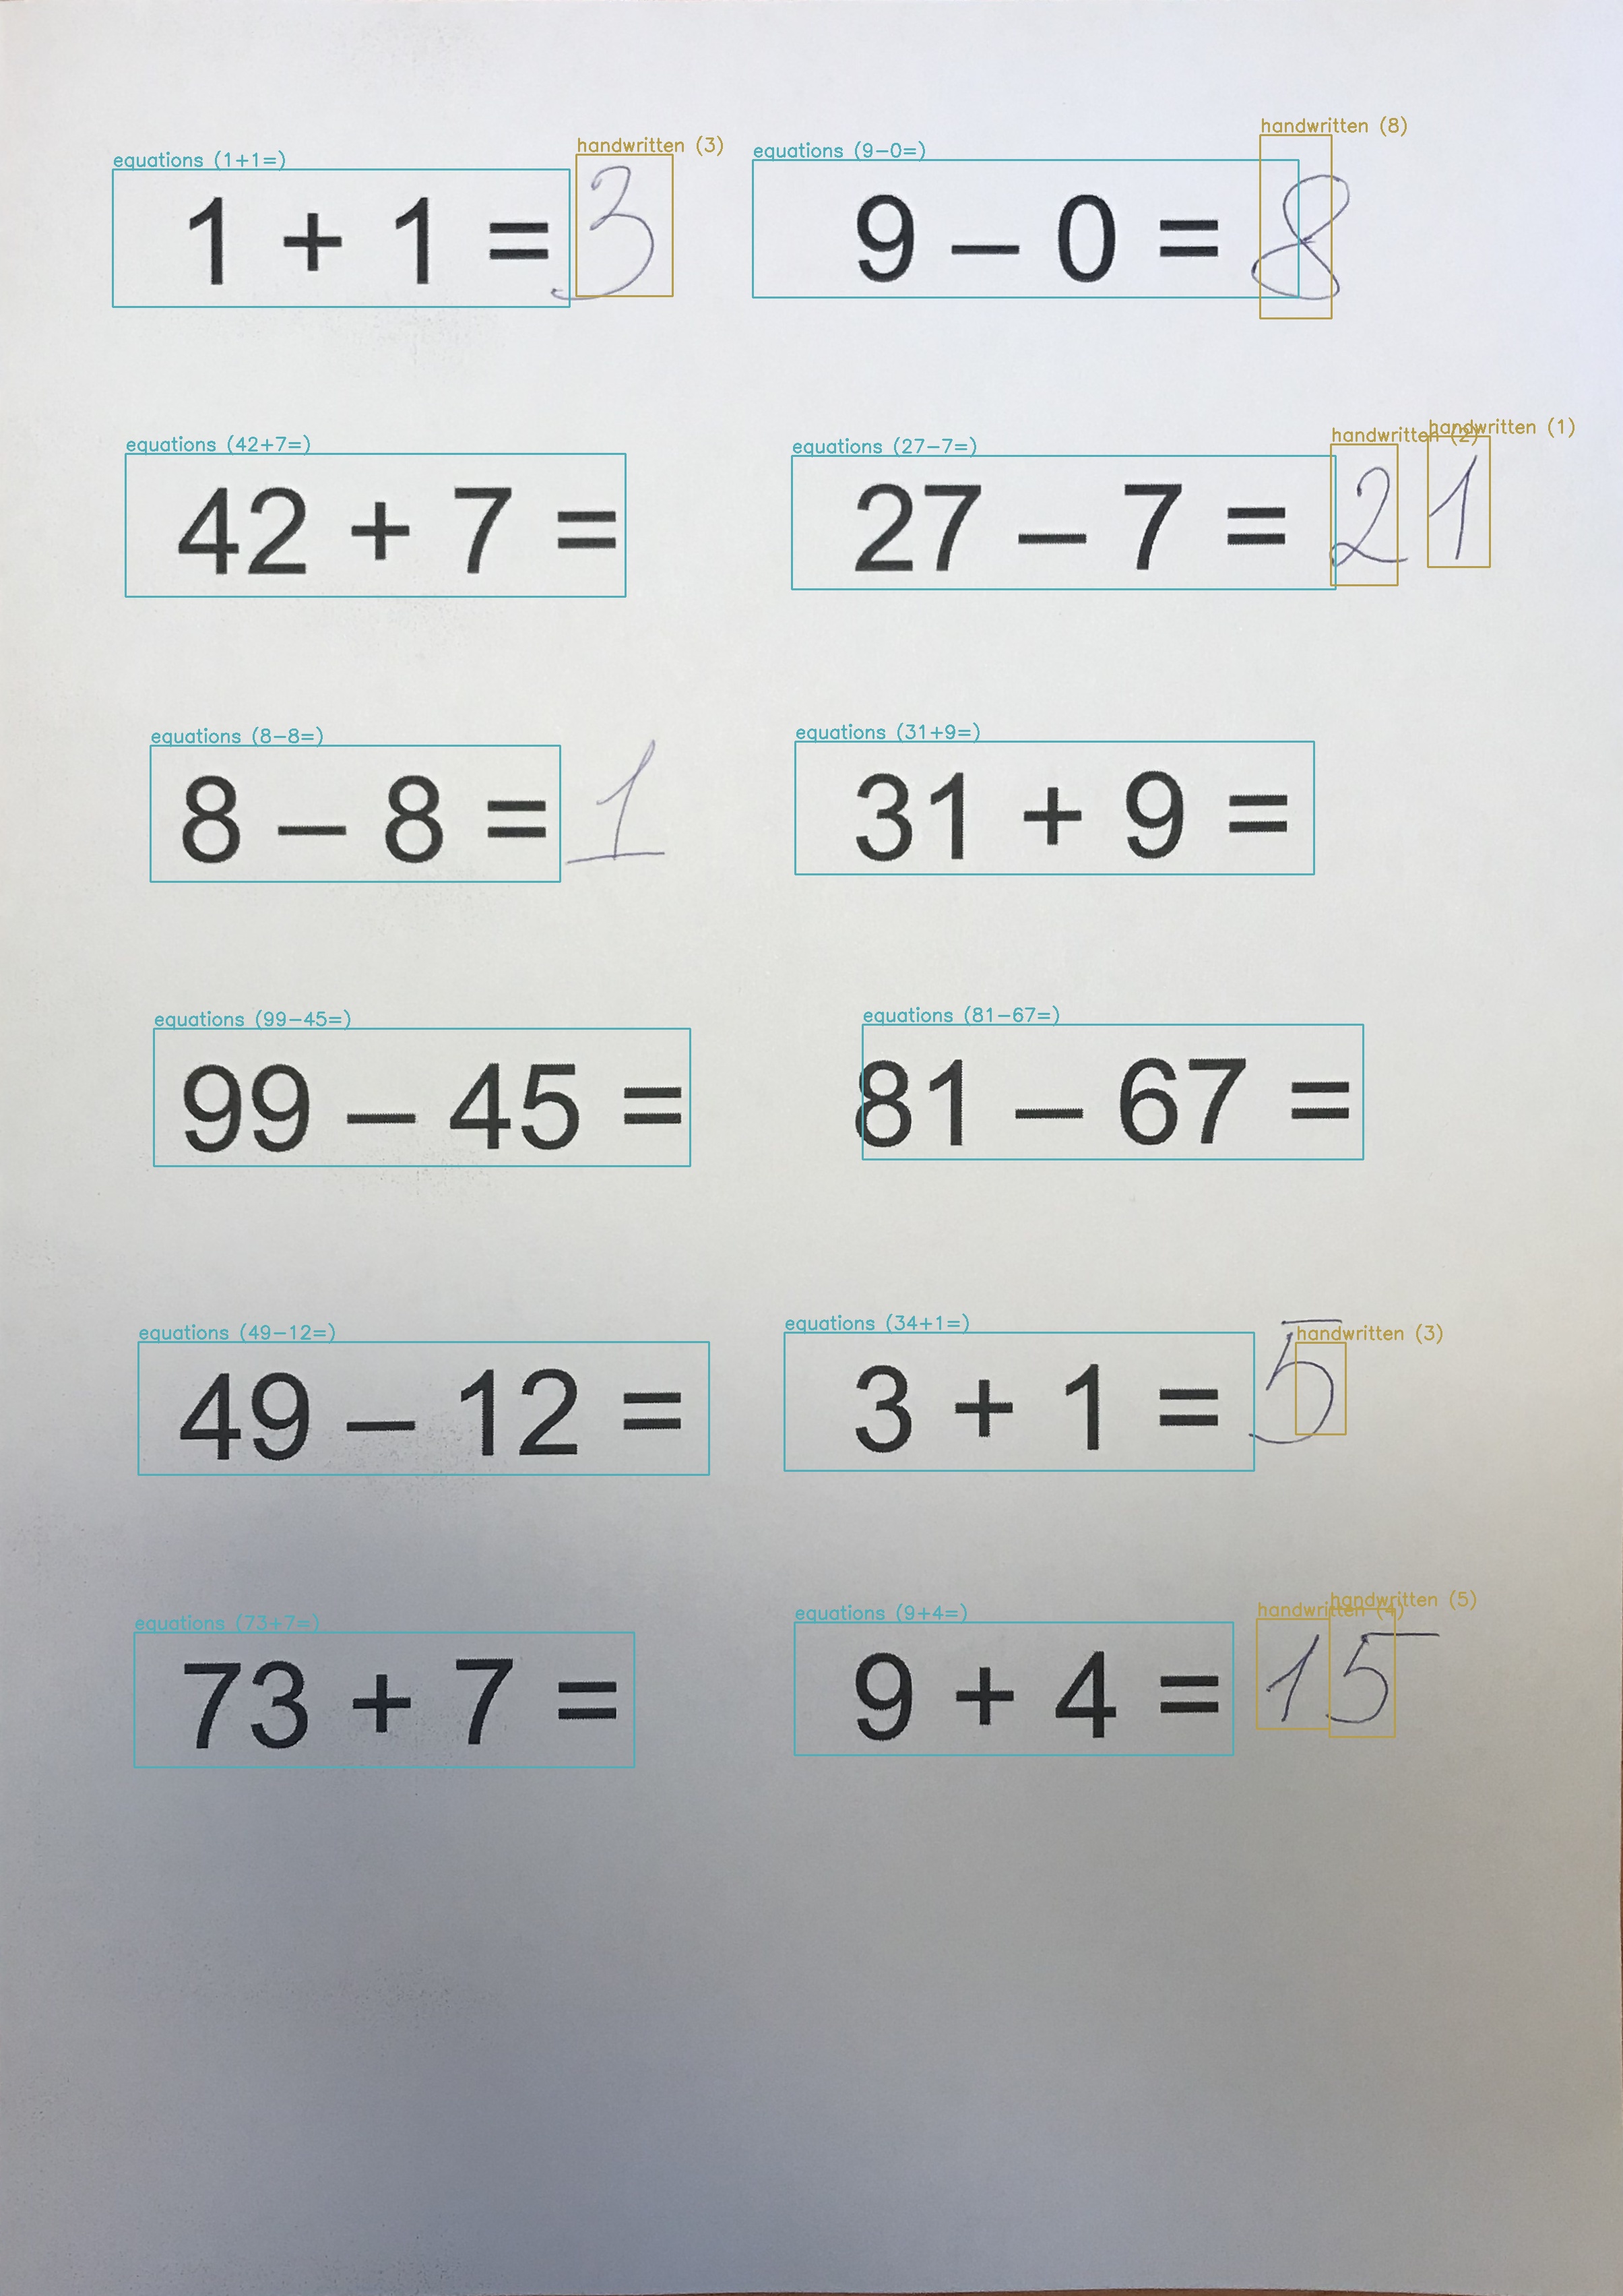 handwritten (8)
equations (1+1=) handwritten (3) equations (9-0=)
1 + 1 = 3 9 – 0 = 8
equations (42+7=) equations (27-7=) handwritten (2) handwritten (1)
42 + 7 = 27 – 7 = 2 1
equations (8-8=) equations (31+9=)
8 – 8 = 1 31 + 9 =
equations (99-45=) equations (81-67=)
99 – 45 = 81 – 67 =
equations (49-12=) equations (34+1=) handwritten (3)
49 – 12 = 3 + 1 = 5
equations (73+7=) equations (9+4=) handwritten (4) handwritten (5)
73 + 7 = 9 + 4 = 15